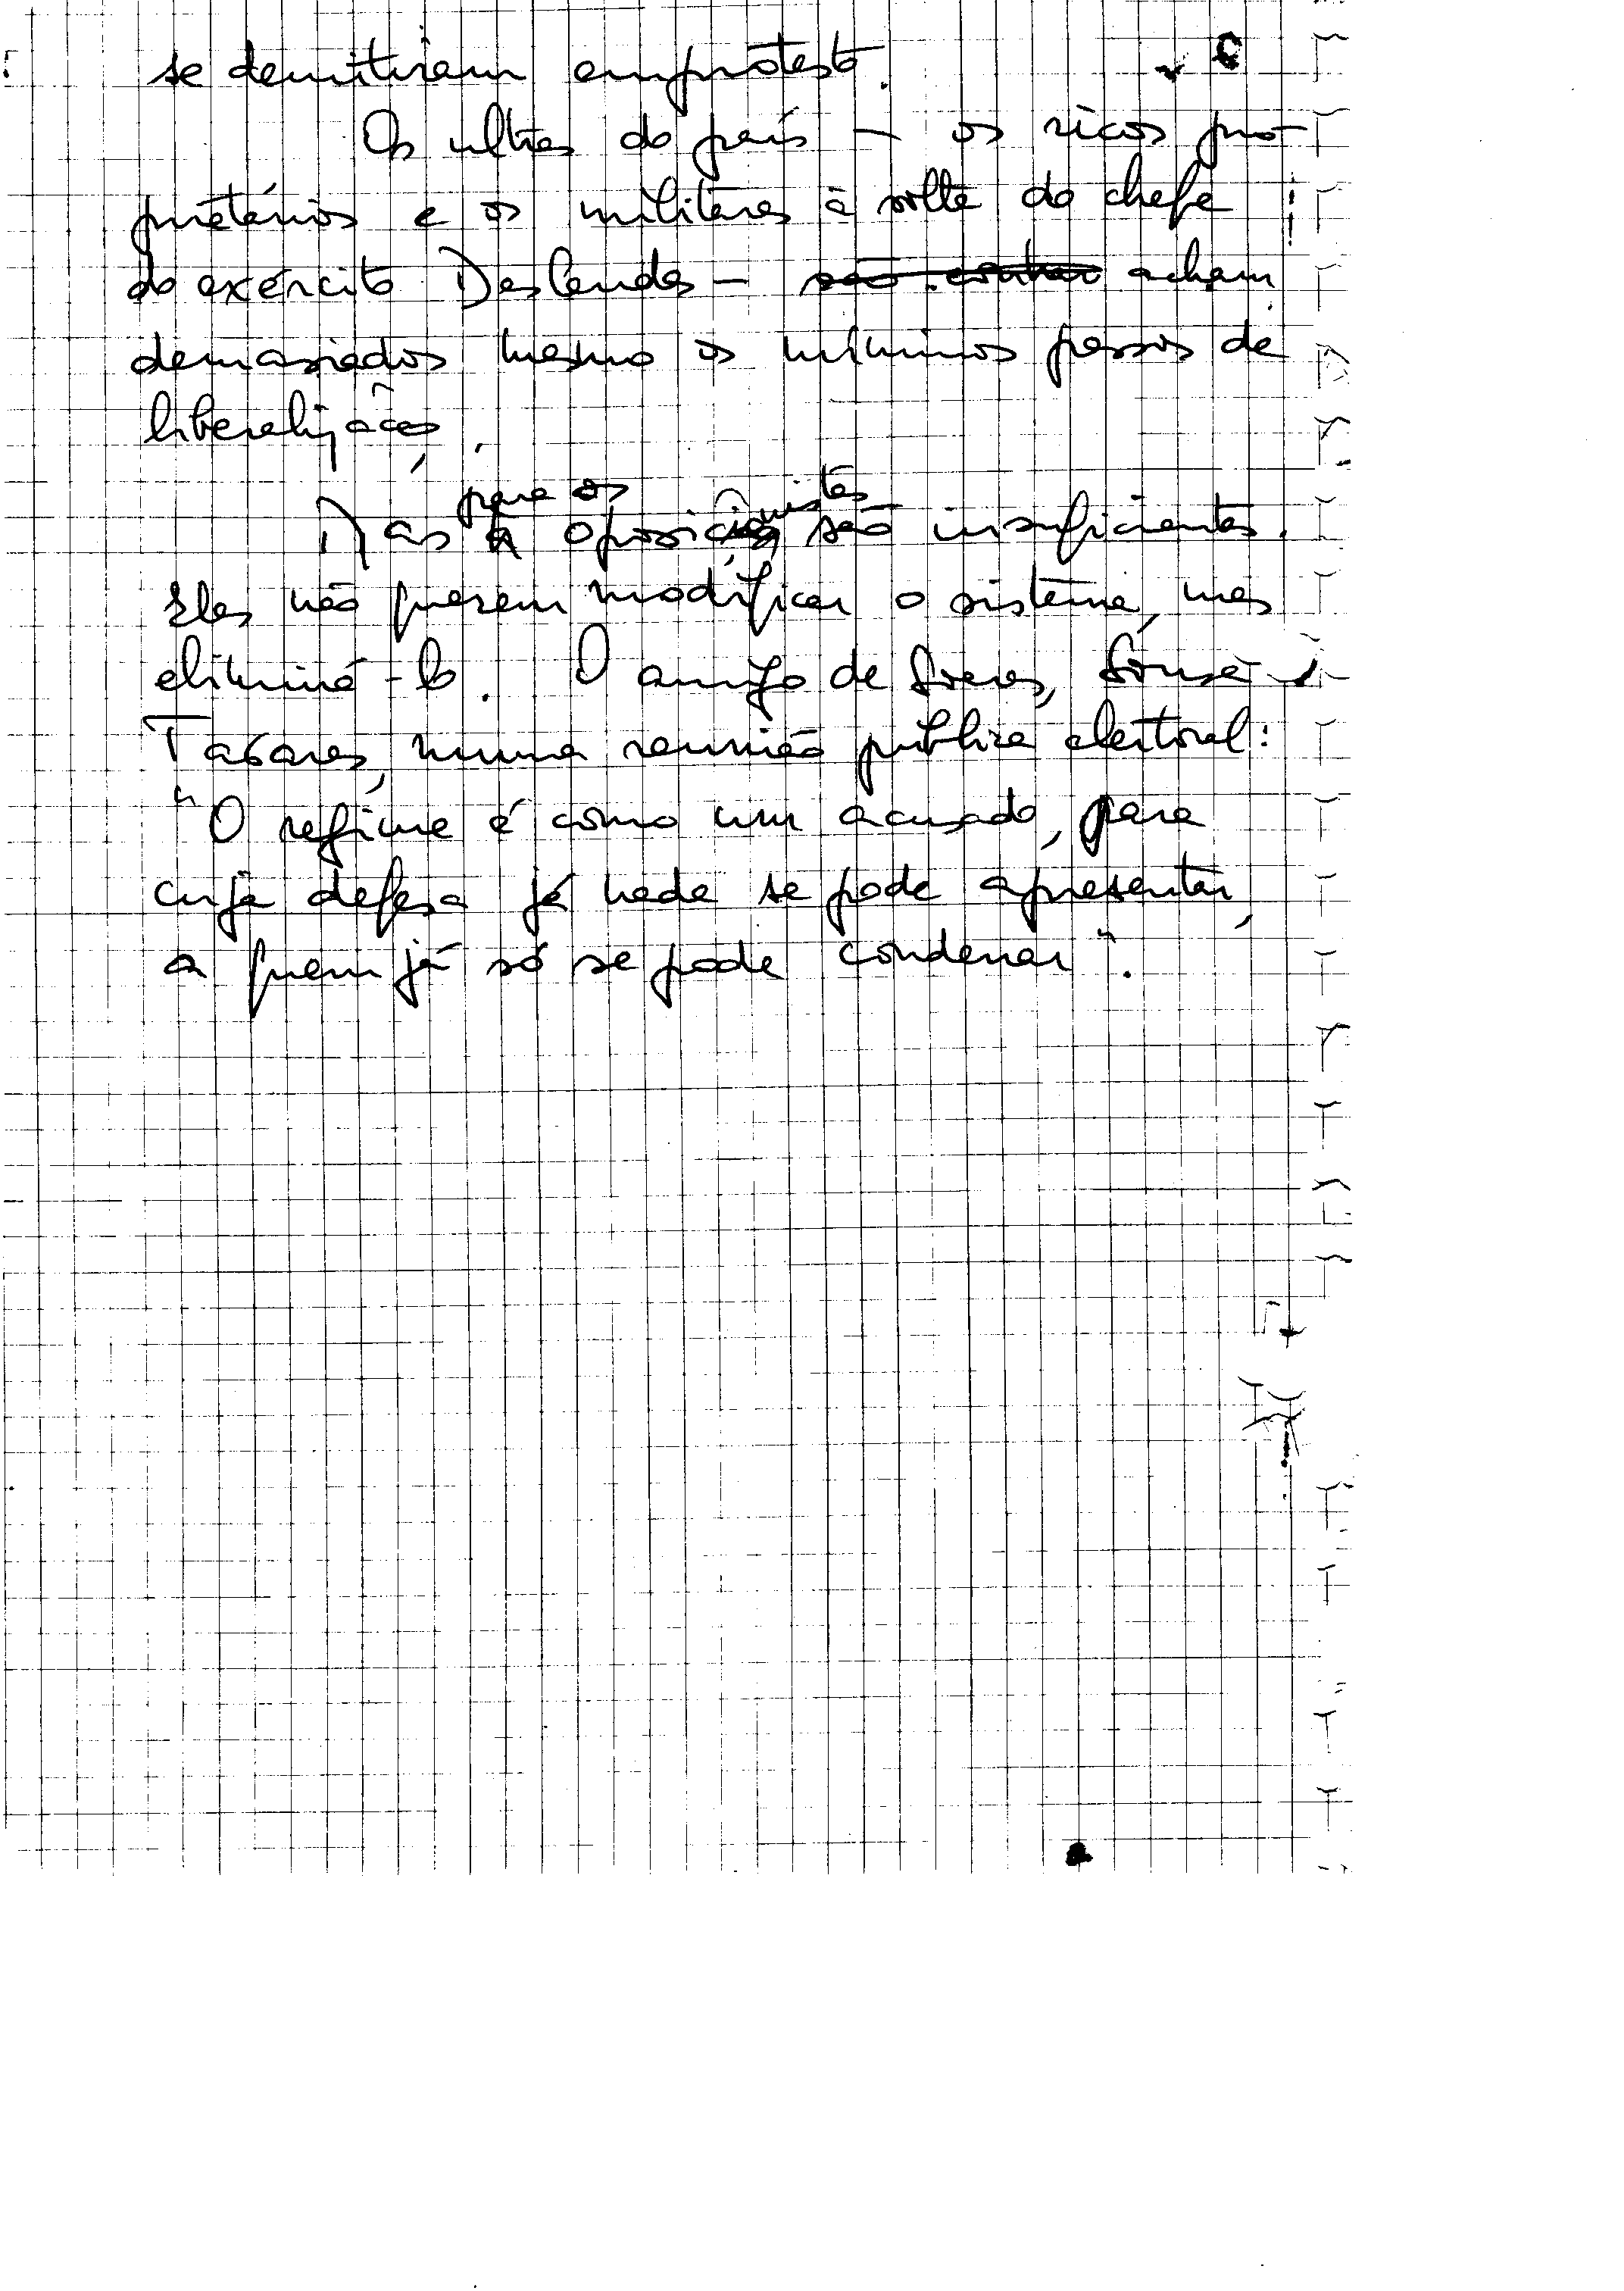 se demitiram em protesto.
Os ultras do país – os ricos pro-
prietários e os militares à volta do chefe
do exército Deslandes – são contra acham
demasiados mesmo os mínimos passos de
liberalização.
para os
Mas a oposicionistas são insuficientes.
Eles não querem modificar o sistema, mas
eliminá-lo. O amigo de Soares, Sousa
Tavares, numa reunião pública eleitoral:
"O regime é como um acusado, para
cuja defesa já nada se pode apresentar,
a quem já só se pode condenar".